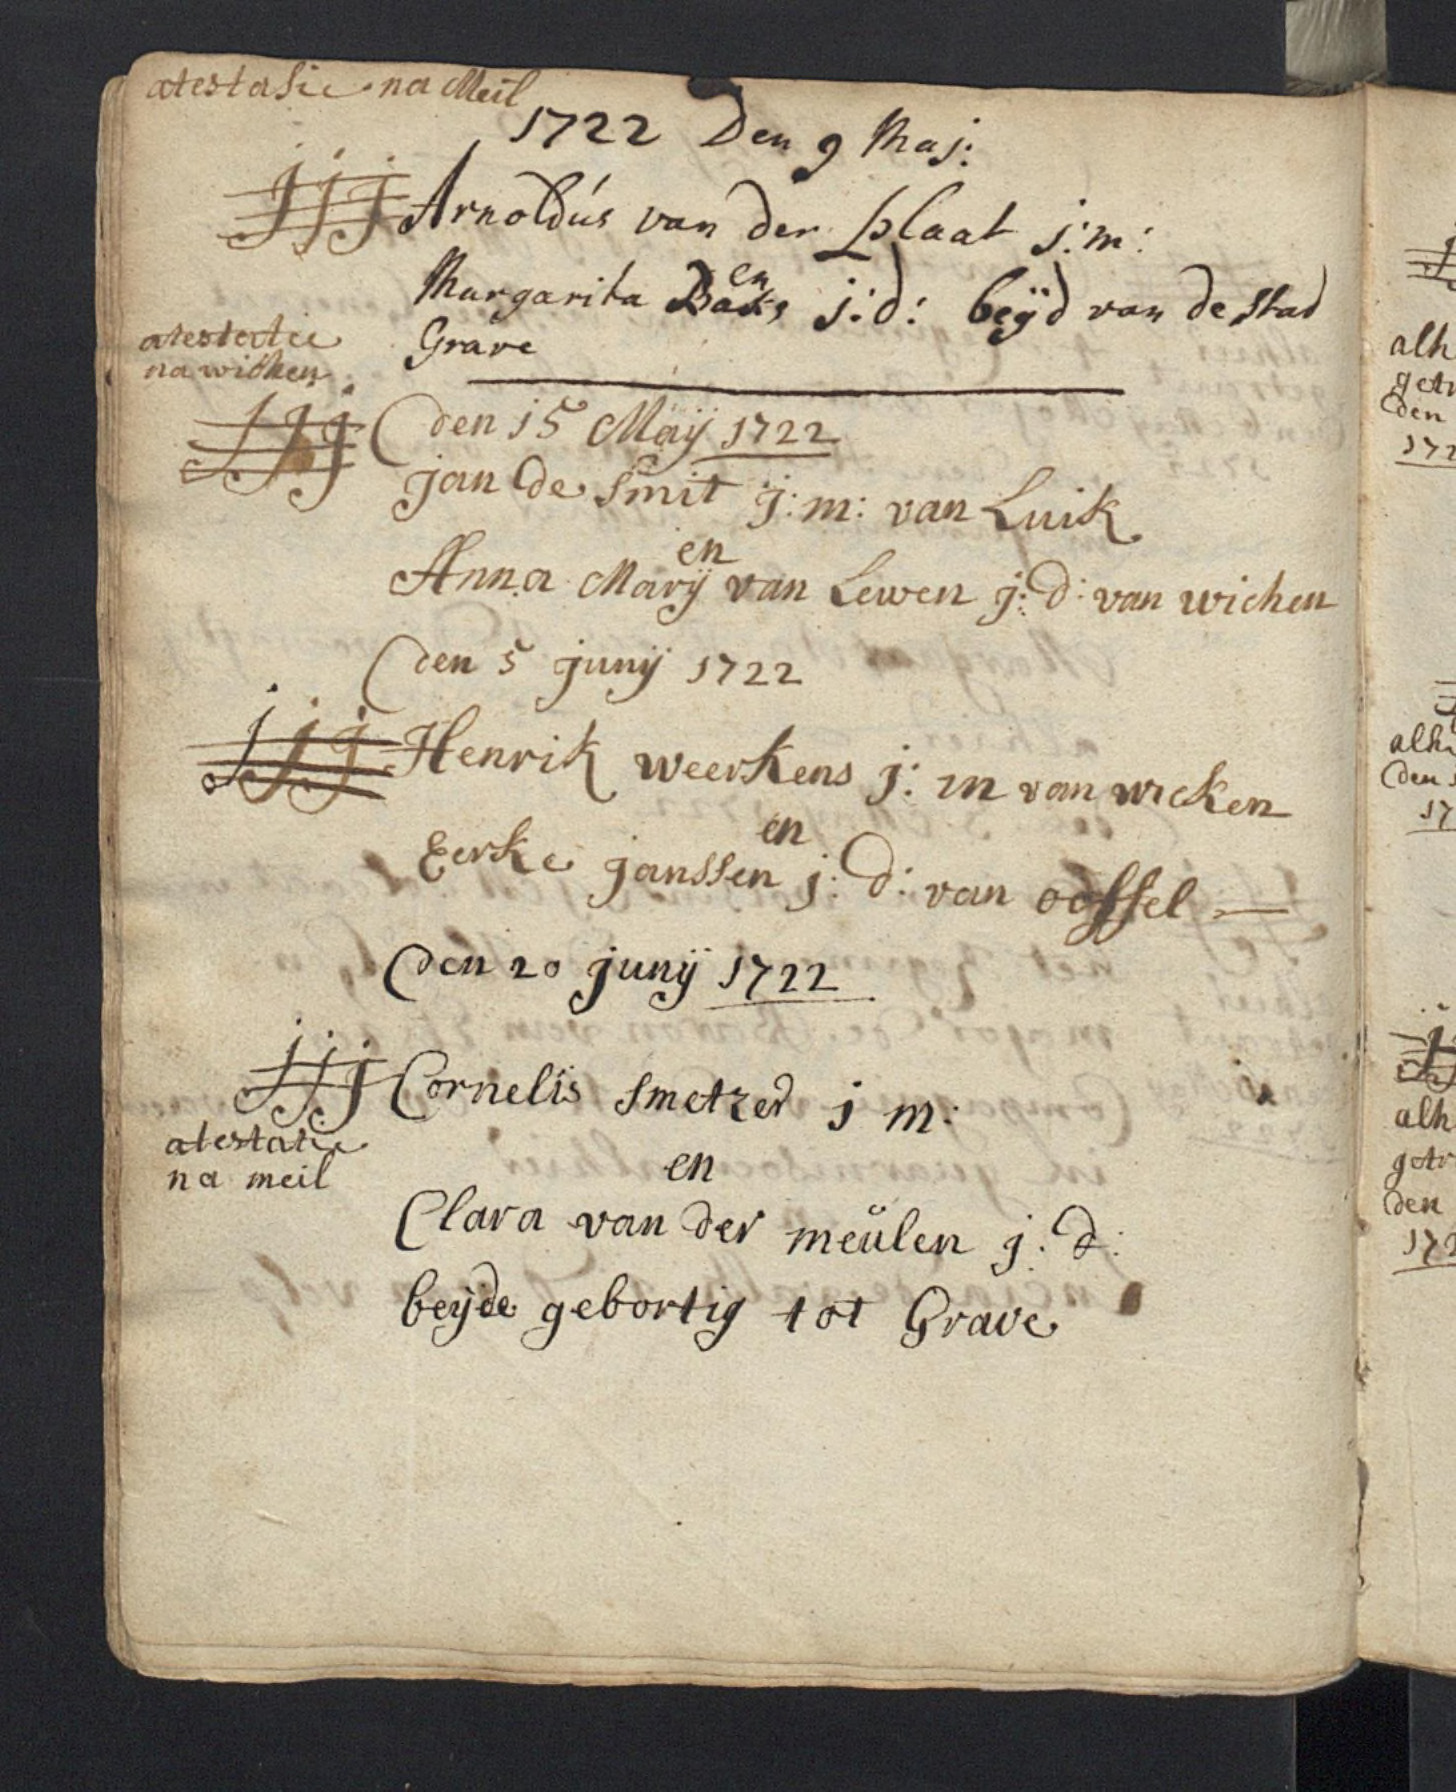 atestasie na Meil
1722 Den 9 Maj:
jjj Arnoldus van der plaat j:m:
en
Margarita Baks j:d: beÿd van de stad
Grave
atestatie
na wichen
jjj den 15 Maÿ 1722
jan de Smit j:m: van Luik
en
Anna Marÿ van Lewen j:d: van wichen
den 5 junÿ 1722
jjj Henrik weerkens j:m van wicken
en
Eerke janssen j:d: van
den 20 junÿ 1722
jjj Cornelis Smetzer j m:
atestatie
na meil
en
Clara van der meülen j:d:
beÿde gebortig tot Grave
alh
getr
den
172
alh
den
17
alh
getr
den
172